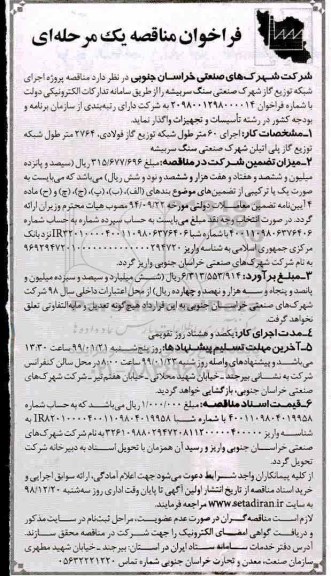 فراخوان مناقصه یک مرحله‌ای
شرکت شهرک‌های صنعتی خراسان جنوبی در نظر دارد مناقصه پروژه اجرای
شبکه توزیع گاز شهرک صنعتی سنگ سربیشه را از طریق سامانه تدارکات الکترونیکی دولت
با شماره فراخوان ۲۰۹۸۰۰۱۲۹۸۰۰۰۰۱۴ به شرکت دارای رتبه‌بندی از سازمان برنامه و
بودجه کشور در رشته تأسیسات و تجهیزات واگذار نماید.
۱-مشخصات کار: اجرای ۶۰ متر طول شبکه توزیع گاز فولادی، ۲۷۶۴ متر طول شبکه
توزیع گاز پلی اتیلن شهرک صنعتی سنگ سربیشه
۲-میزان تضمین شرکت در مناقصه: مبلغ ۳۱۵/۶۷۷/۶۹۶ ریال (سیصد و پانزده
میلیون و ششصد و هفتاد و هفت هزار و ششصد و نود و شش ریال) می‌باشد که می‌بایست به
صورت یک یا ترکیبی از تضمین‌های موضوع بندهای (الف)، (ب)، (پ)، (ج)، (چ) و (ح) ماده
۴ آیین‌نامه تضمین معاملات دولتی مورخه ۹۴/۰۹/۲۲ مصوب هیات محترم وزیران ارائه
گردد. در صورت انتخاب وجه نقد مبلغ می‌بایست به حساب سپرده شماره به حساب شماره
۴۰۰۱۱۰۹۸۰۶۳۷۶۴۰۶ با شماره شبا نزد بانک
مرکزی جمهوری اسلامی به شناسه واریز
به نام شرکت شهرک‌های صنعتی خراسان جنوبی واریز گردد.
۳-مبلغ برآورد: ۶/۳۱۳/۵۵۳/۹۱۴ ریال (شش میلیارد و سیصد و سیزده میلیون و
پانصد و پنجاه و سه هزار و نهصد و چهارده ریال) از محل اعتبارات داخلی سال ۹۸ شرکت
شهرک‌های صنعتی خراسان جنوبی به این قرارداد هیچ‌گونه تعدیل و مابه‌التفاوتی تعلق
نخواهد گرفت.
۴-مدت اجرای کار: یکصد و هشتاد روز تقویمی
۵-آخرین مهلت تسلیم پیشنهادها: روز پنج‌شنبه ۹۹/۰۱/۲۱ ساعت ۱۳:۳۰
می‌باشد و پیشنهادهای واصله روز شنبه ۹۹/۰۱/۲۳ ساعت ۸:۰۰ در محل سالن کنفرانس
شرکت به نشانی بیرجند - خیابان شهید محلاتی - خیابان هفتم تیر - شرکت شهرک‌های
صنعتی خراسان جنوبی، بازگشایی خواهد گردید.
۶-قیمت اسناد مناقصه: مبلغ ۱/۰۰۰/۰۰۰ ریال می‌باشد که به حساب شماره
۴۰۰۱۱۰۹۸۰۴۰۱۹۹۵۸ با شماره شبا به
شناسه واریز به نام شرکت شهرک‌های
صنعتی خراسان جنوبی واریز و رسید آن همزمان با تحویل اسناد به دبیرخانه شرکت
تحویل گردد.
از کلیه پیمانکاران واجد شرایط دعوت می‌شود جهت اعلام آمادگی، ارائه سوابق اجرایی و
خرید اسناد مناقصه از تاریخ انتشار اولین آگهی تا پایان وقت اداری روز سه‌شنبه ۹۸/۱۲/۲۰
به سایت www.setadiran.ir مراجعه فرمایند.
لازم است مناقصه‌گران در صورت عدم عضویت، مراحل ثبت‌نام در سایت مذکور
و دریافت گواهی امضای الکترونیکی را جهت شرکت در مناقصه محقق سازند.
آدرس دفتر خدمات سامانه ستاد ایران در استان: بیرجند - خیابان شهید مطهری
سازمان صنعت، معدن و تجارت خراسان جنوبی شماره تماس ۰۵۶۳۲۲۲۱۲۲۰